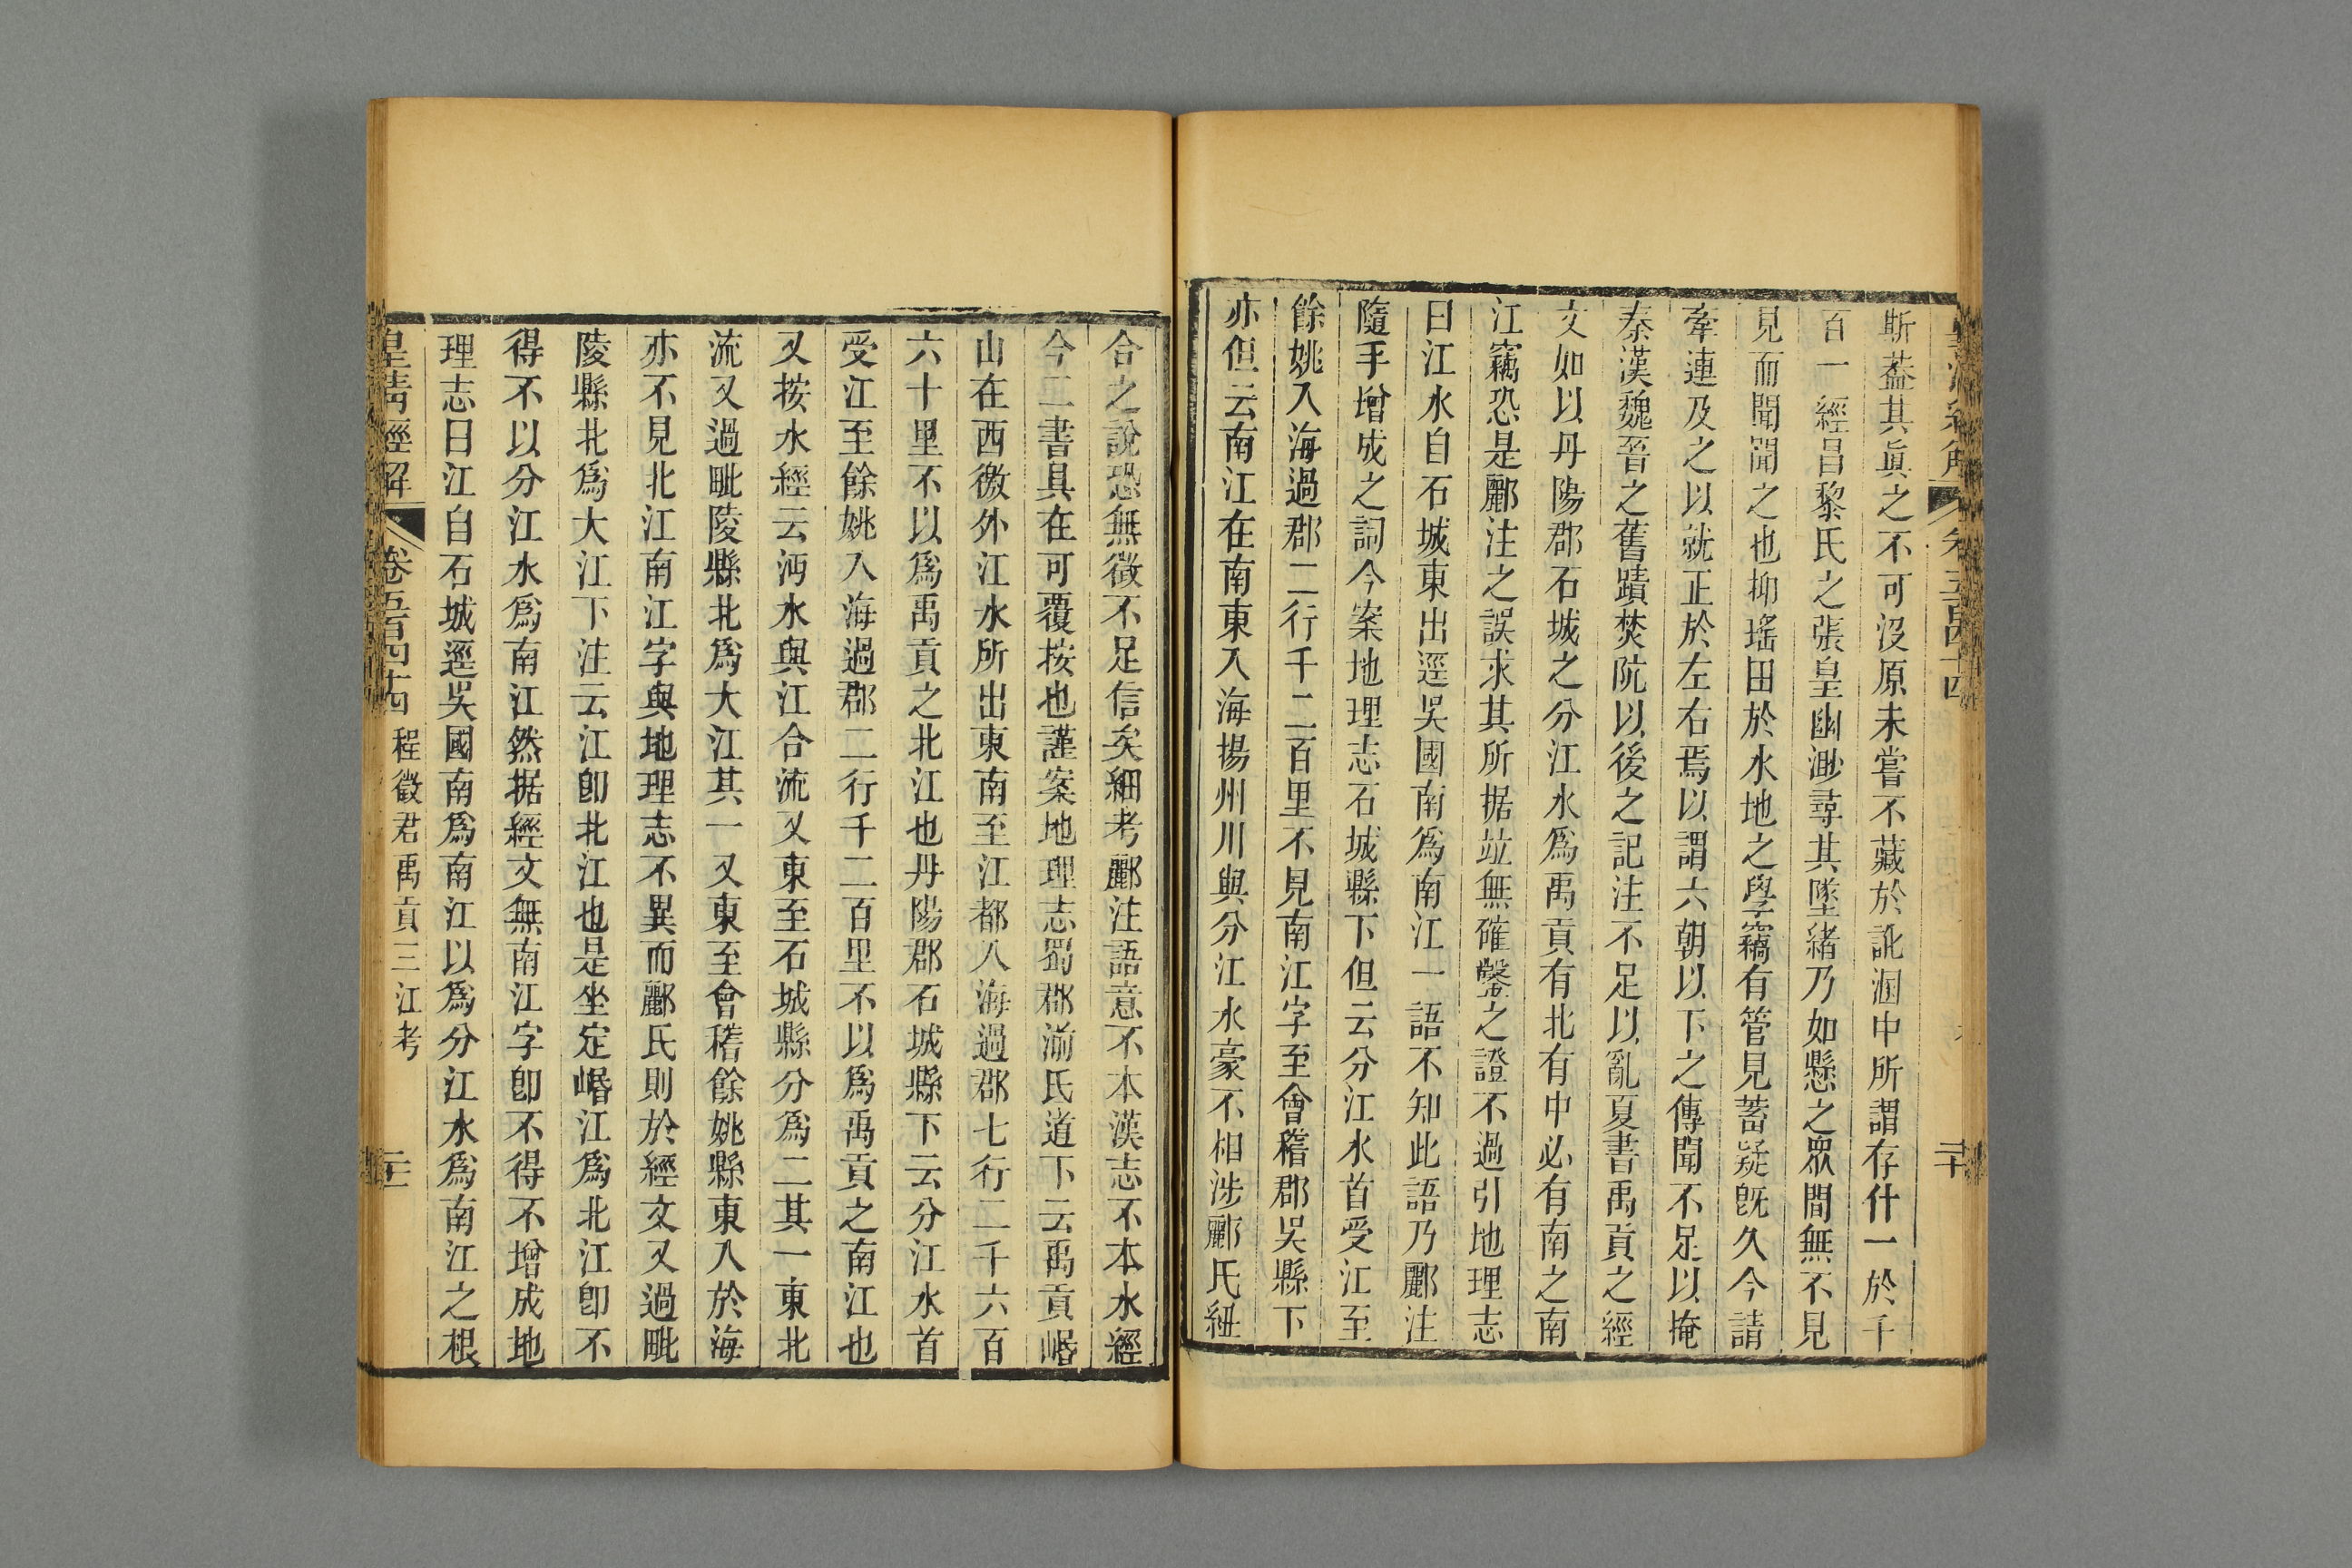 斯葢其眞之不可沒原未嘗不藏於訛溷中所謂存什一於千
百一經昌黎氏之張皇幽渺尋其墜緒乃如懸之眾間無不見
見而聞聞之也抑瑤田於水地之學竊有管見蓄疑旣久今請
牽連及之以就正於左右焉以謂六朝以下之傳聞不足以掩
秦漢魏晉之舊蹟焚阬以後之記注不足以亂夏書禹貢之經
文如以丹陽郡石城之分江水爲禹貢有北有中必有南之南
江竊恐是酈注之誤求其所据竝無確鑿之證不過引地理志
曰江水自石城東出逕吳國南爲南江一語不知此語乃酈注
隨手增成之詞今案地理志石城縣下但云分江水首受江至
餘姚入海過郡二行千二百里不見南江字至會稽郡吳縣下
亦但云南江在南東入海揚州川與分江水豪不相涉酈氏紐
合之說恐無徵不足信矣細考酈注語意不本漢志不本水經
今二書具在可覆按也謹案地理志蜀郡湔氏道下云禹貢㟭
山在西徼外江水所出東南至江都入海過郡七行二千六百
六十里不以爲禹貢之北江也丹陽郡石城縣下云分江水首
受江至餘姚入海過郡二行千二百里不以爲禹貢之南江也
又按水經云沔水與江合流又東至石城縣分爲二其一東北
流又過毗陵縣北爲大江其一又東至會稽餘姚縣東入於海
亦不見北江南江字與地理志不異而酈氏則於經文又過毗
陵縣北爲大江下注云江卽北江也是坐定㟭江爲北江卽不
得不以分江水爲南江然据經文無南江字卽不得不增成地
理志曰江自石城逕吳國南爲南江以爲分江水爲南江之根
皇清經解 卷五百四十四 程徵君禹貢三江考 三